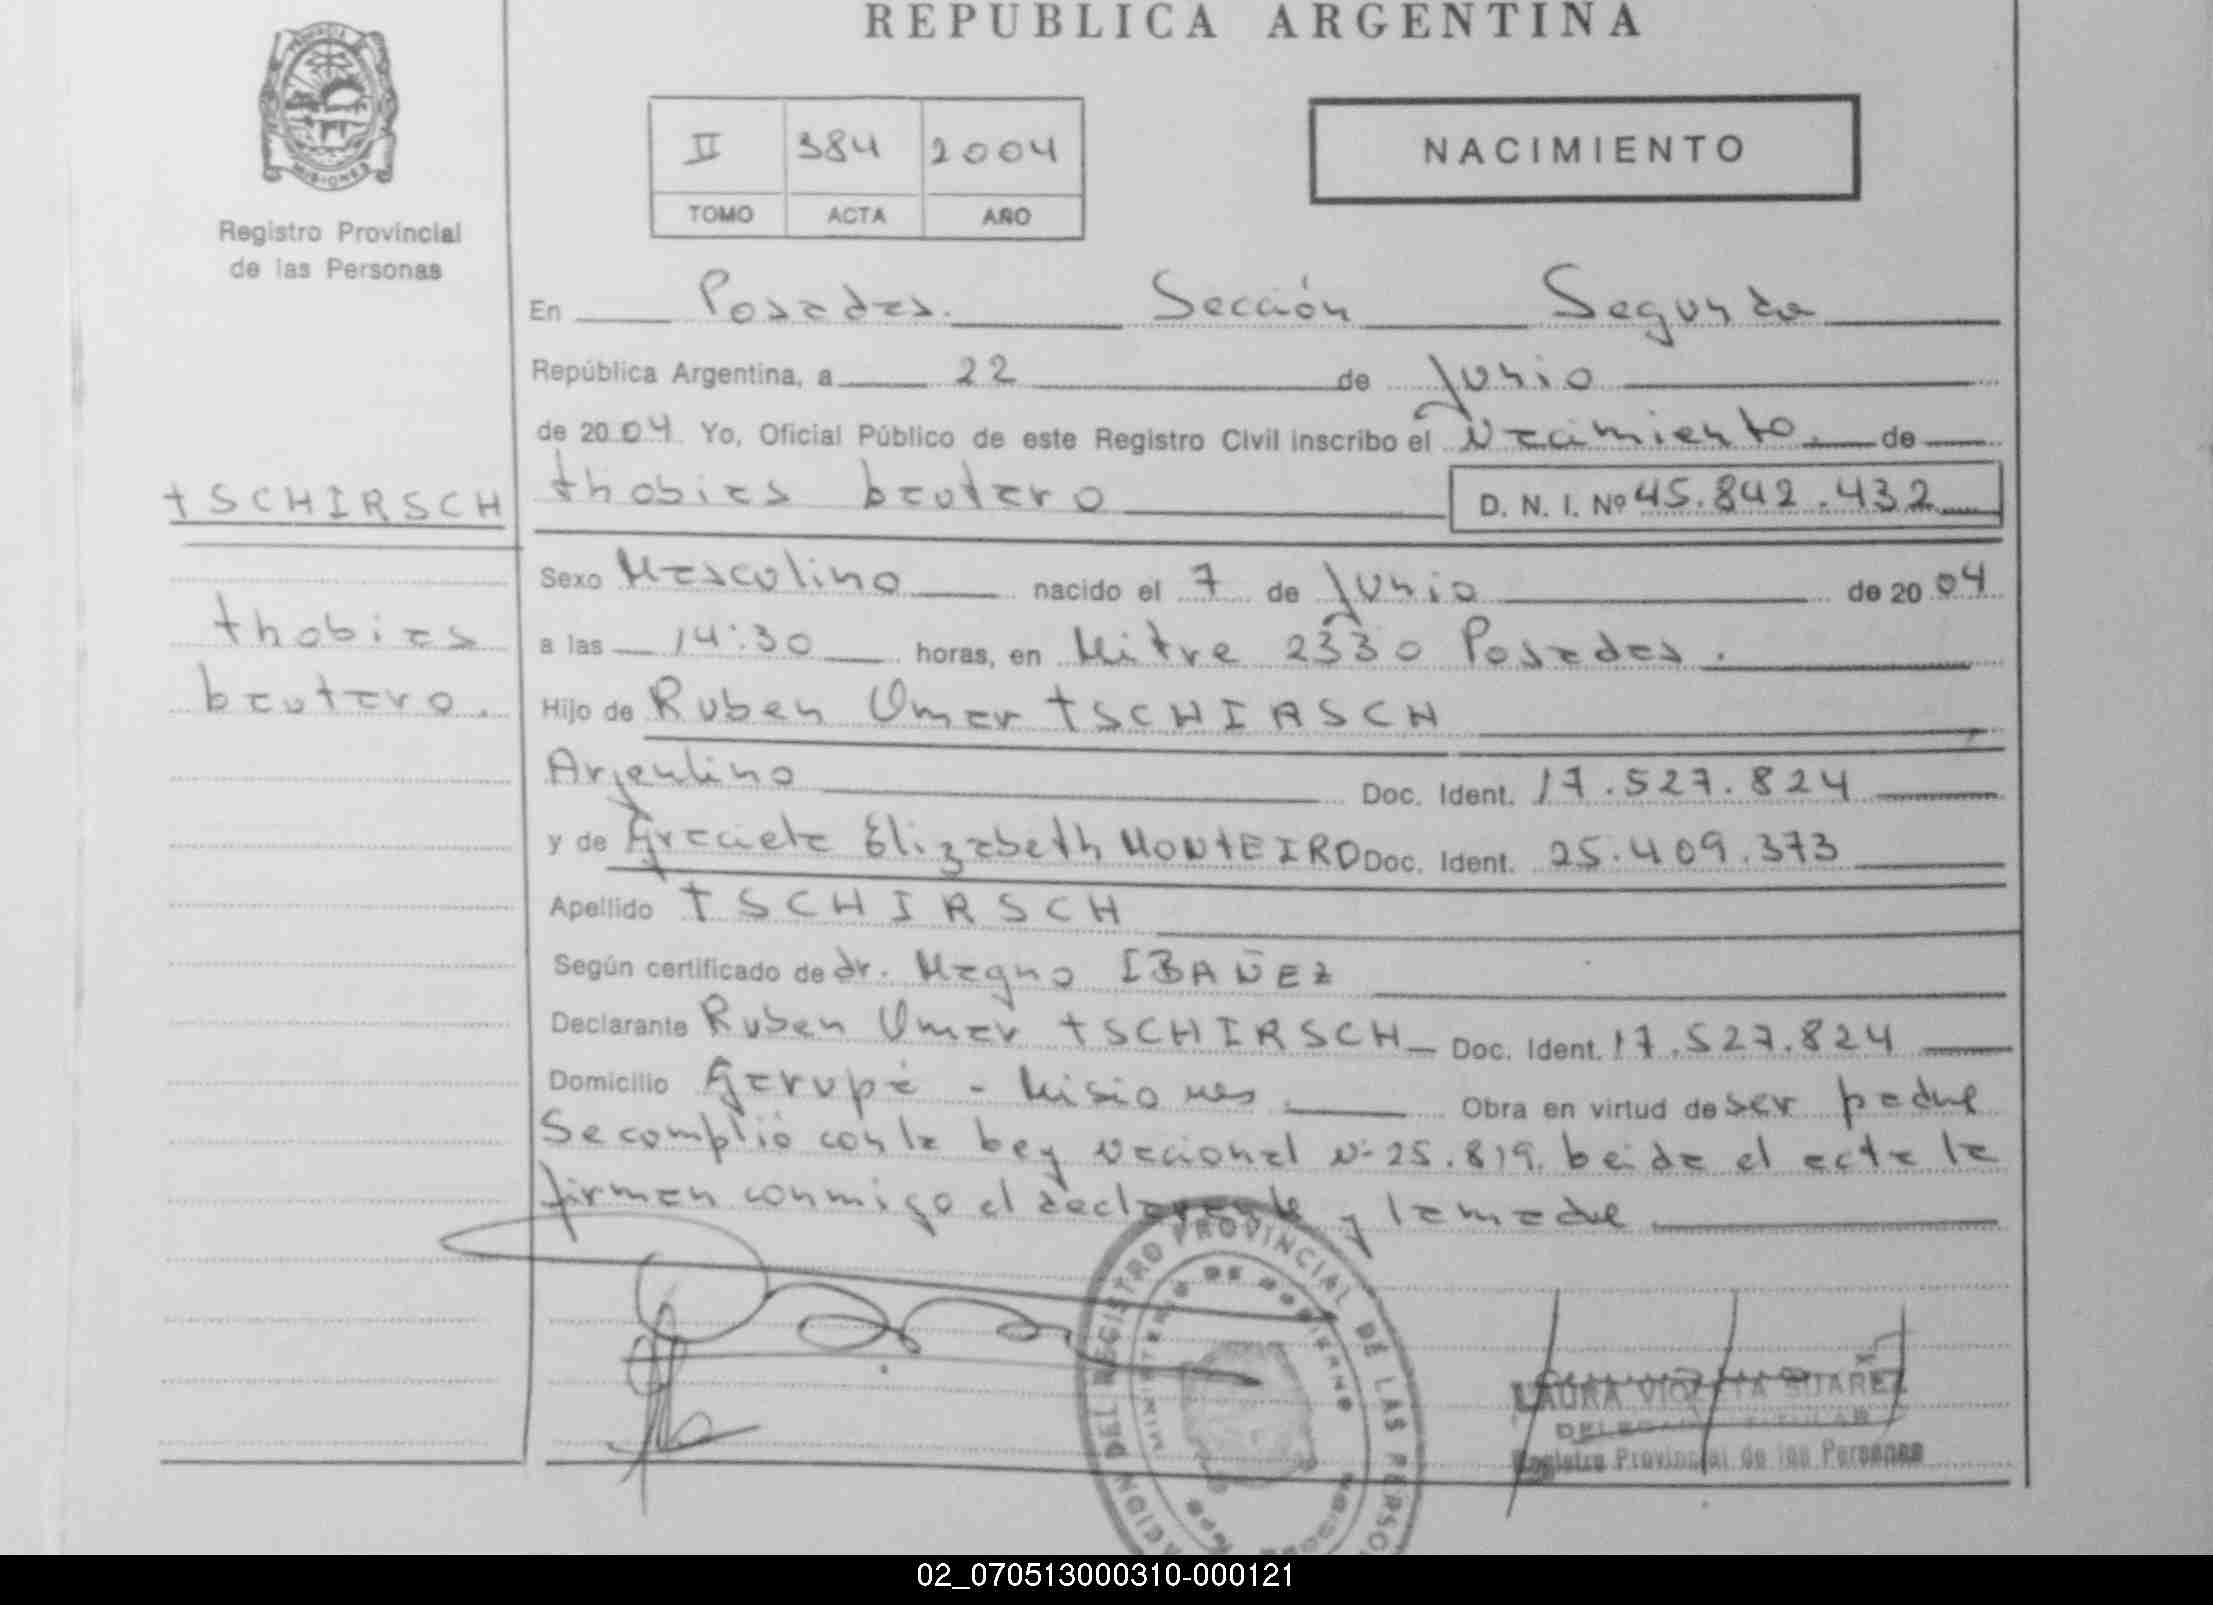 REPUBLICA ARGENTINA
PROVINCIA
MISIONES
Registro Provincial
de las Personas
II 384 2004
TOMO ACTA AÑO
NACIMIENTO
En Posadas. Sección Segunda
República Argentina, a 22 de Junio
de 2004 Yo, Oficial Público de este Registro Civil inscribo el Nacimiento. de
tSCHIRSCH
thobias
lautaro.
thobias lautaro D. N. I. Nº 45.842.432
Sexo Masculino nacido el 7 de Junio de 2004
a las 14:30 horas, en Mitre 2330 Posadas.
Hijo de Ruben Omar tSCHIRSCH
Argentino Doc. Ident. 17.527.824
y de Graciela Elizabeth MONtEIRO Doc. Ident. 25.409.373
Apellido tSCHIRSCH
Según certificado de dr. Magno IBAÑEZ
Declarante Ruben Omar tSCHIRSCH Doc. Ident. 17.527.824
Domicilio Garupá - Misiones. Obra en virtud de ser padre
Se complió con la Ley Nacional Nº 25.819. Leida el acta la
firman conmigo el declarante y la madre
REGISTRO PROVINCIAL DE LAS PERSO
MINISTERIO DE GOBIERNO
LAURA VIOLETA SUAREZ
Registro Provincial de las Personas
02_070513000310-000121